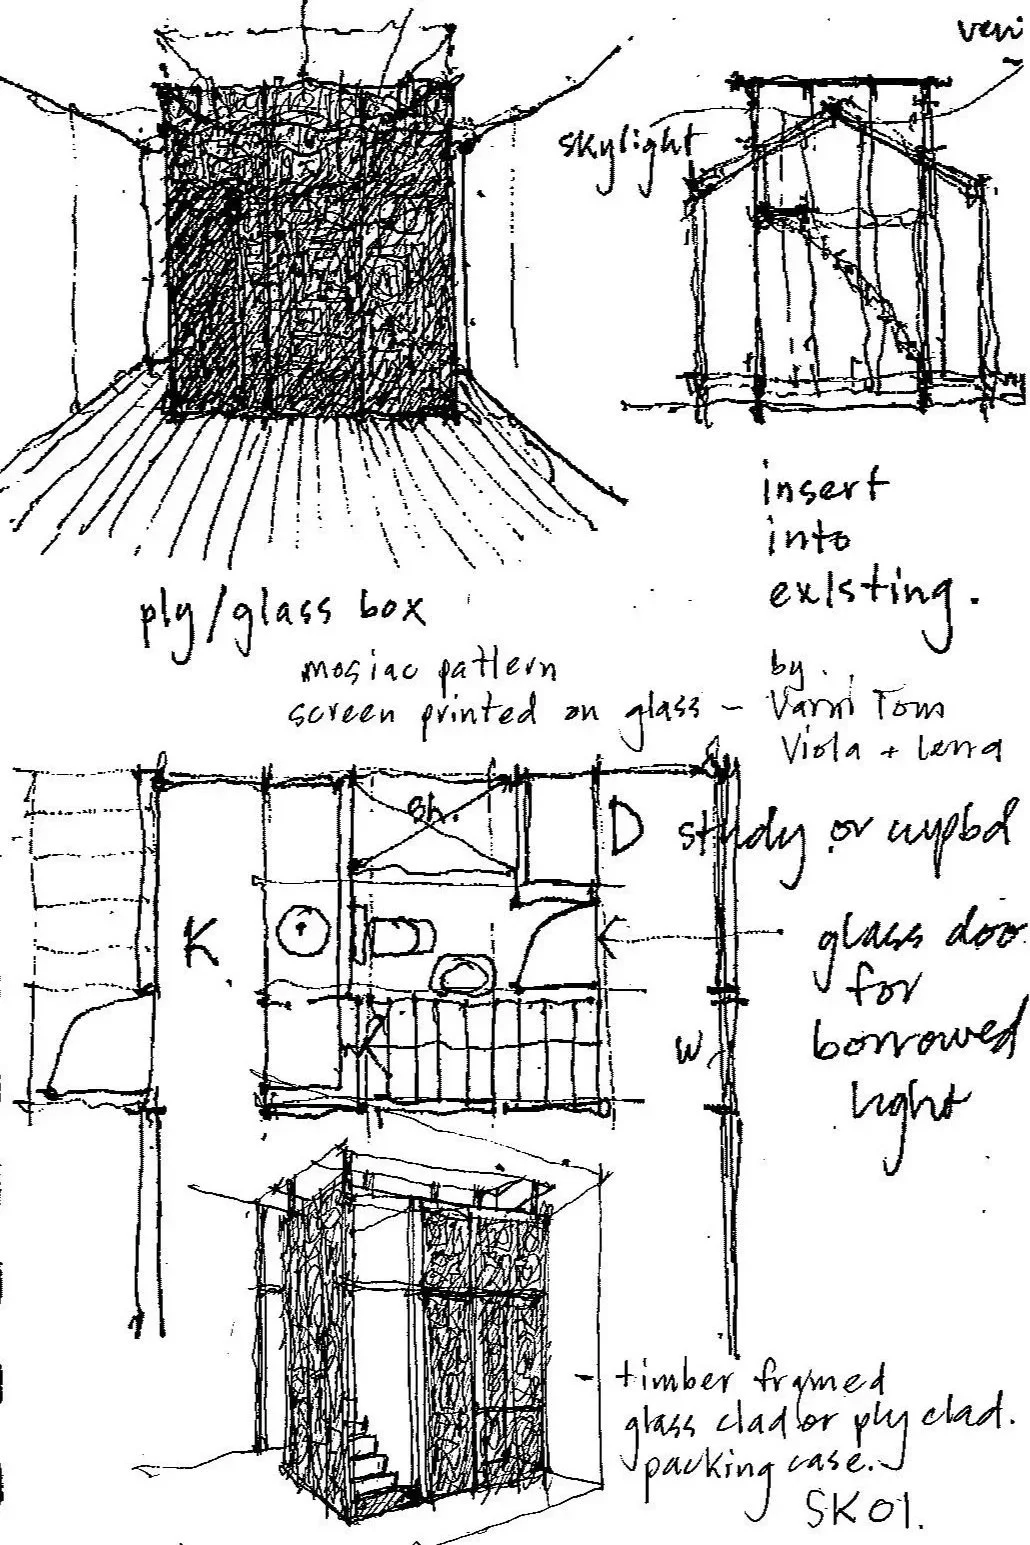 skylight
insert
into
existing.
ply/glass box
mosiac pattern
screen printed on glass - 
by
Tom
Viola +
sh.
D study or cupbd
K
glass doo
for
W
borrowed
light
- timber framed
glass clad or ply clad.
packing case.
SK01.